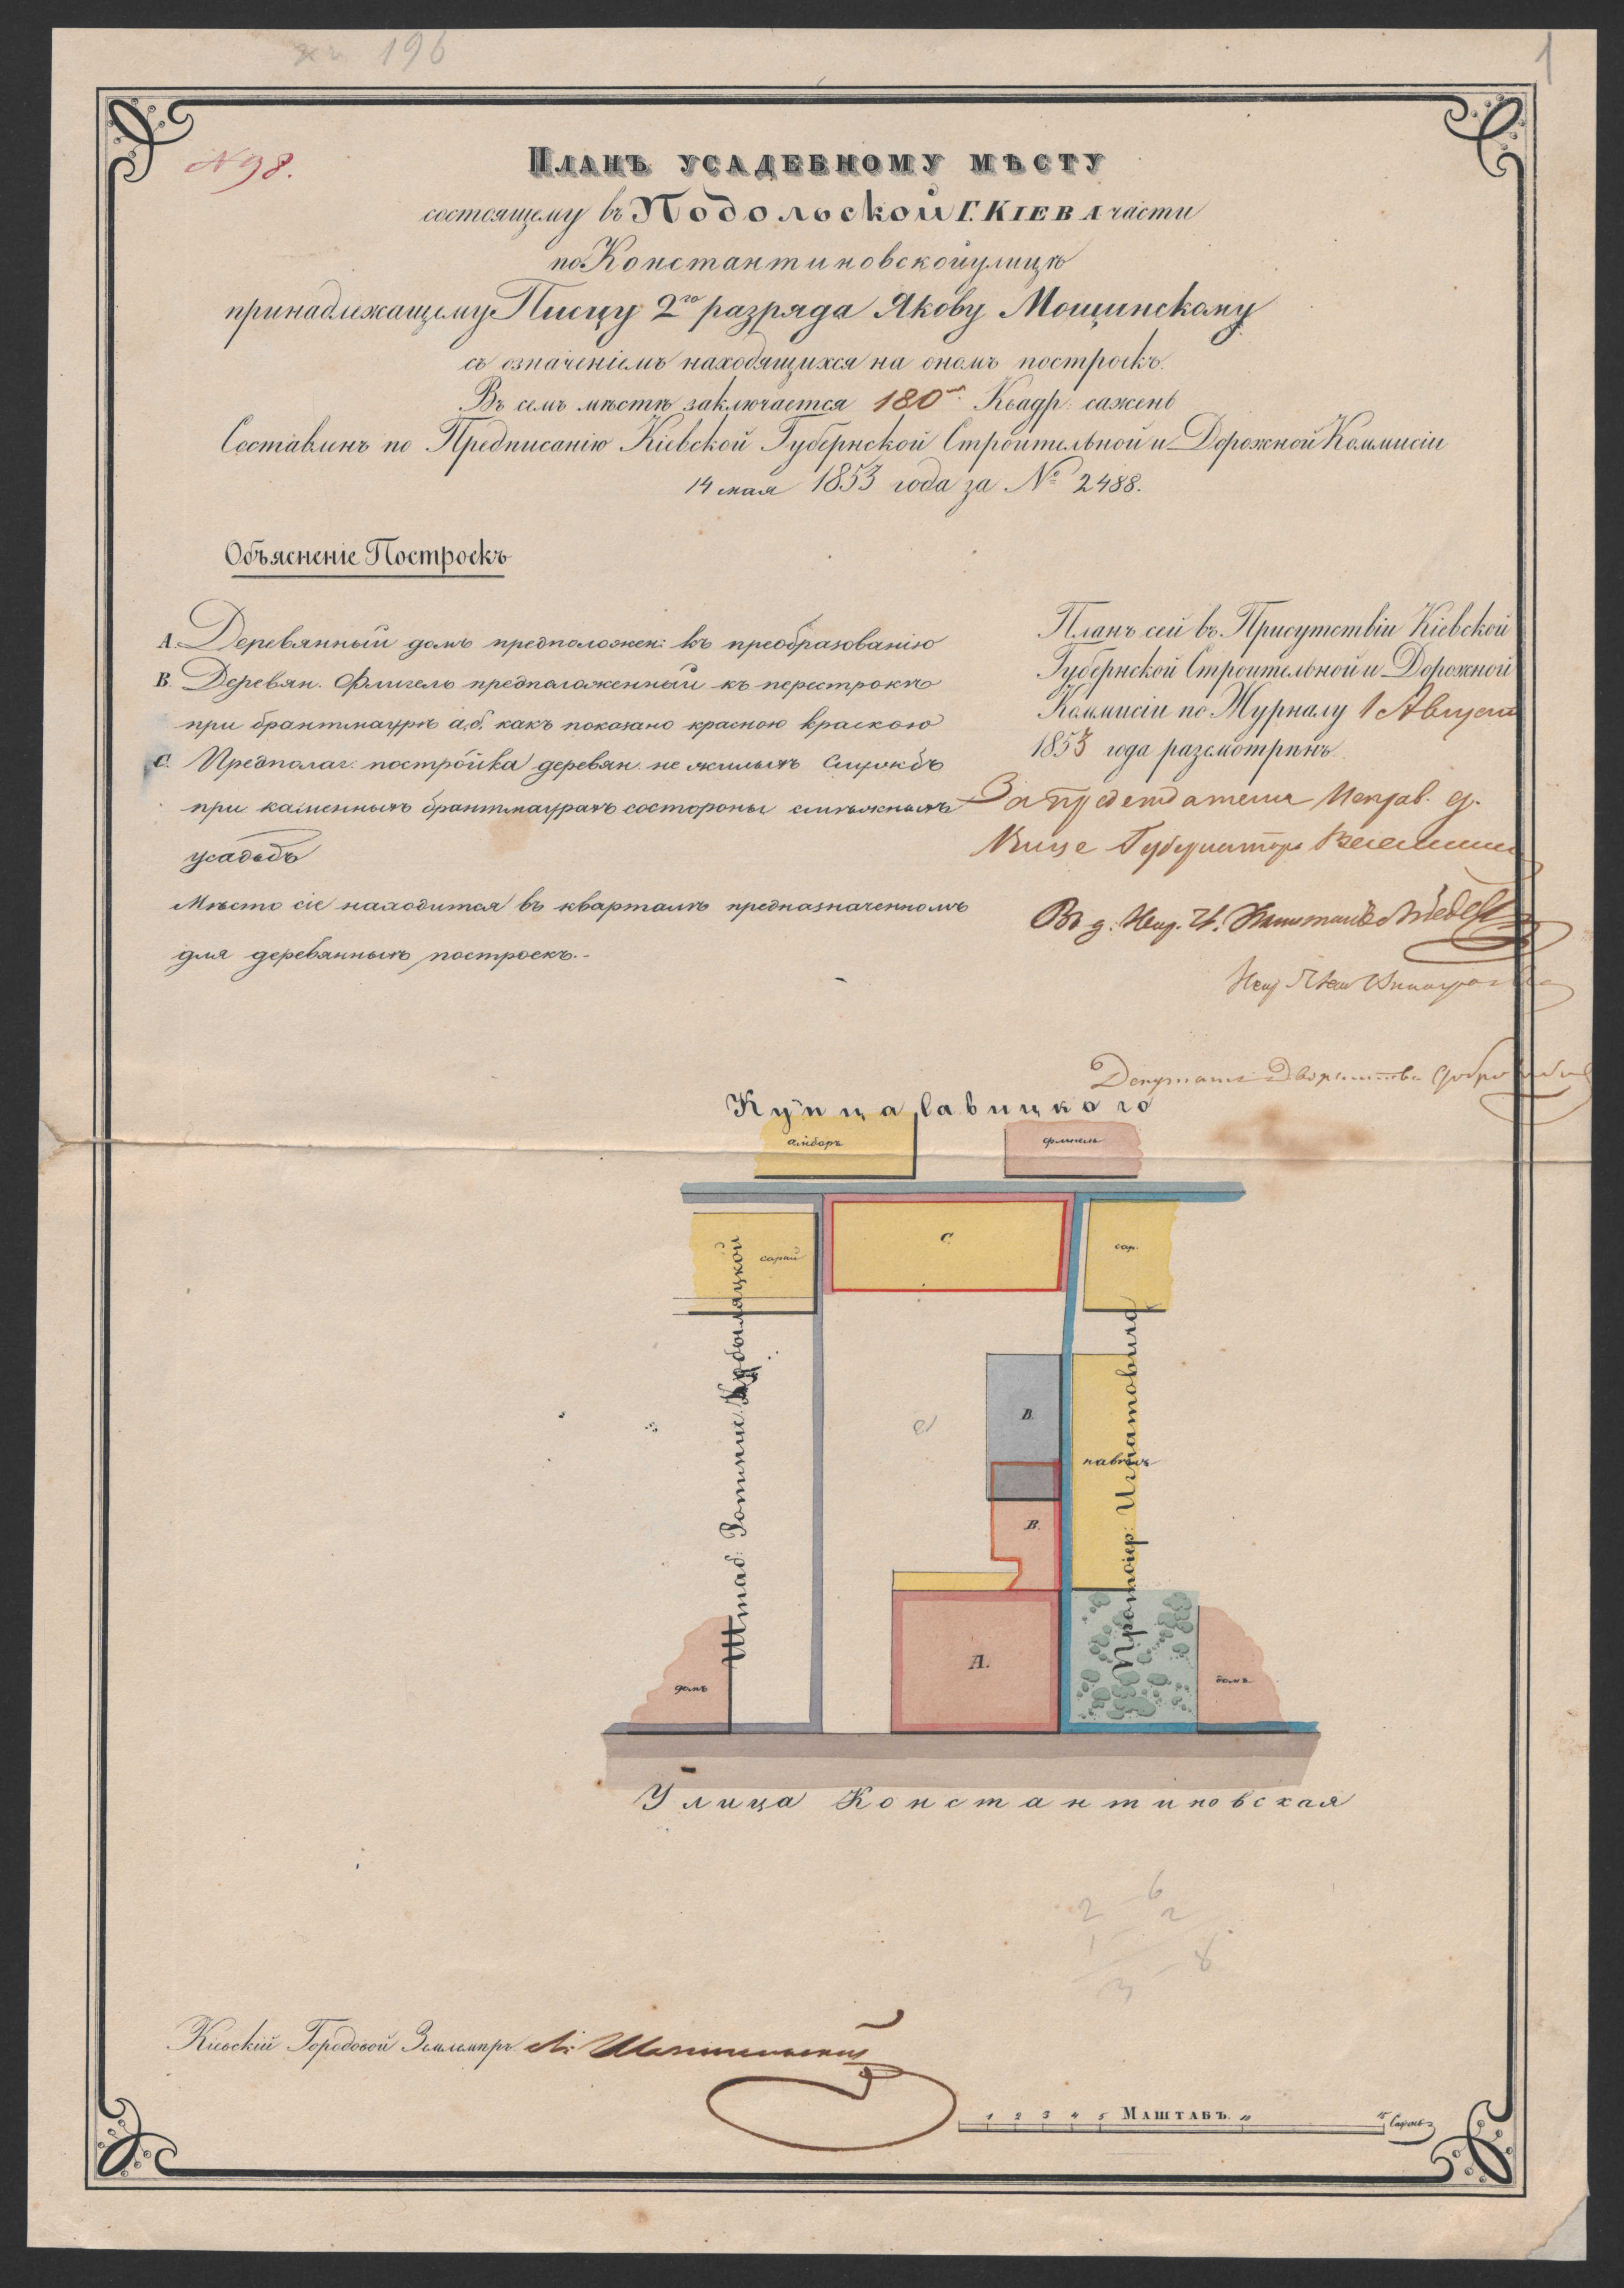 196
1
N 98.
Планъ усадебному мѣсту
состоящему въ Подольской Г. Кіева части
по Константиновской улицѣ
принадлежащему Писцу 2го разряда Якову Мощинскому
съ означеніемъ находящихся на ономъ построекъ.
Въ семъ мѣстѣ заключается 180 Квадр: сажень
Составленъ по Предписанію Кіевской Губернской Строительной и Дорожной Коммисіи
14 мая 1853 года за № 2488.
Объясненіе Построекъ
А. Деревянный домъ предположен: къ преобразованію
В. Деревян. Флигель предположенный къ перестройкѣ
при брантмаурѣ а,б, какъ показано красною краскою
С. Предполаг: постройка деревян. не жилыхъ Службъ
при каменныхъ брантмаурахъ состороны смѣжныхъ
усадьбъ
Мѣсто сіе находится въ кварталѣ предназначенномъ
для деревянныхъ построекъ.-
Планъ сей въ Присутствіи Кіевской
Губернской Строительной и Дорожной
Коммисіи по Журналу 1 Августа
1853 года разсмотрѣнъ
За председателя Исправ. д.
Вице Губернатора
Депутатъ Дворянства
Купца Савицкого
амбаръ
флигель
сарай
С.
сар.
Штаб: Ротмис:
В.
навѣсъ
Протоіер: Игнатовича
В.
А.
домъ
домъ
Улица Константиновская
2 - 6
1 - 2
3 - 8
Кіевскій Городовой Землемѣръ
1 2 3 4 5 Маштабъ. 10 15 Сажень